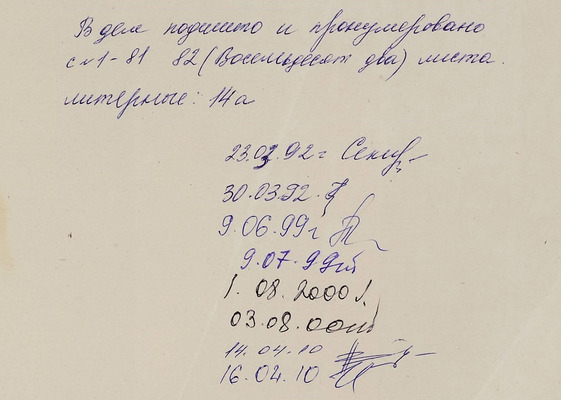 В деле подшито и пронумеровано
с №1-81 82 (Восемьдесят два) листа.
литерные: 14а
23.03.92 г
30.03.92.
9.06.99 г
9.07.99
1. 08. 2000 г.
03.08.00
14.04.10
16.04.10